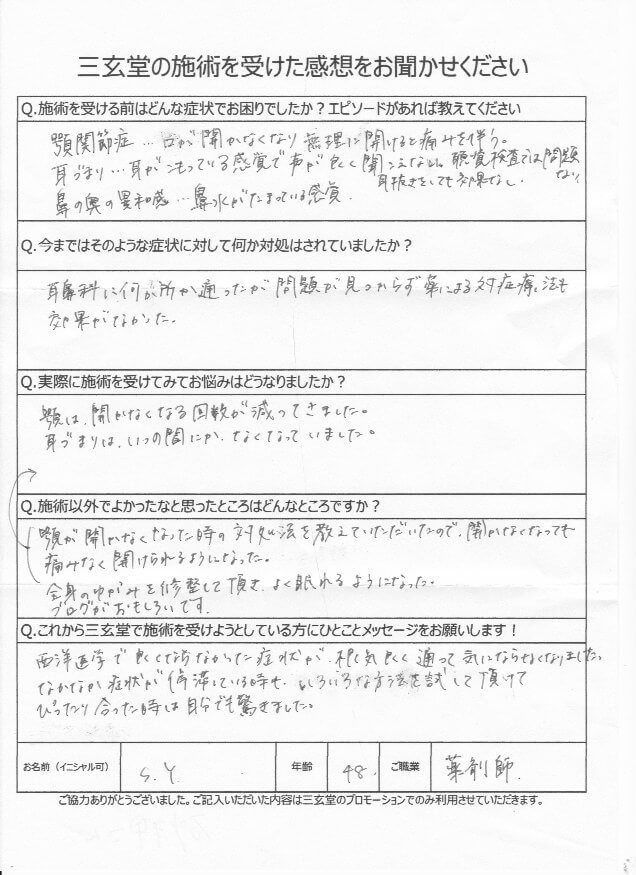 三玄堂の施術を受けた感想をお聞かせください
Q.施術を受ける前はどんな症状でお困りでしたか？エピソードがあれば教えてください
顎関節症…口が開かなくなり無理に開けると痛みを伴う。
耳づまり…耳がこもっている感覚で声が良く聞こえなど。聴覚検査では問題ない
耳抜きをしても効果なし。
鼻の奥の異和感…鼻水がたまっている感覚。
Q.今まではそのような症状に対して何か対処はされていましたか？
耳鼻科に何か所か通ったが問題が見つからず薬による対症療法も
効果がなかった。
Q.実際に施術を受けてみてお悩みはどうなりましたか？
顎は、開かなくなる回数が減ってきました。
耳づまりは、いつの間にか、なくなっていました。
Q.施術以外でよかったなと思ったところはどんなところですか？
顎が開かなくなった時の対処法を教えていただいたので、開かなくなっても
痛みなく開けられるようになった。
全身のゆがみを修整して頂き、よく眠れるようになった。
ブログがおもしろいです。
Q.これから三玄堂で施術を受けようとしている方にひとことメッセージをお願いします！
西洋医学で良くならなかった症状が、根気良く通って気にならなくなりました。
なかなか症状が停滞している時も、いろいろな方法を試して頂けて
ぴったり合った時は自分でも驚きました。
お名前（イニシャル可） S.Y 年齢 48. ご職業 薬剤師.
ご協力ありがとうございました。ご記入いただいた内容は三玄堂のプロモーションでのみ利用させていただきます。